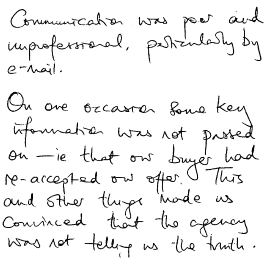 Communication was poor and
unprofessional, particularly by
e-mail.
On one occasion some key
information was not passed
on — ie that our buyer had
re-accepted our offer. This
and other things made us
convinced that the agency
was not telling us the truth.